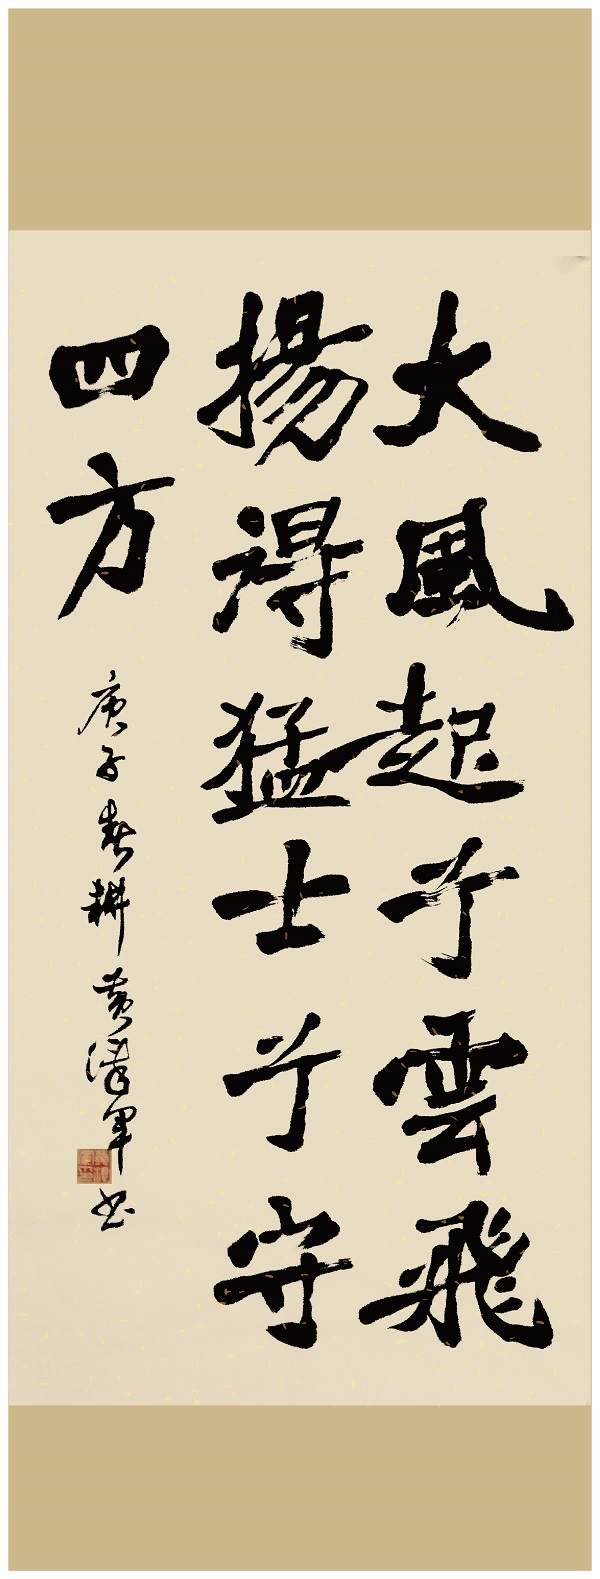 大風起兮雲飛
揚得猛士兮守
四方
庚子春耕黃漢軍书